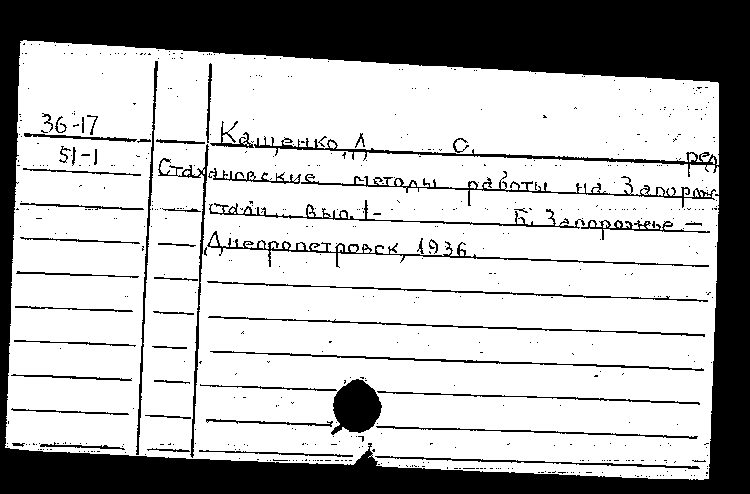 36-17
Кащенко, Д. С. ред
51-1
Стахановские методы работы на Запорож
стали. Вып. 1- Б. Запорожье —
Днепропетровск, 1936.